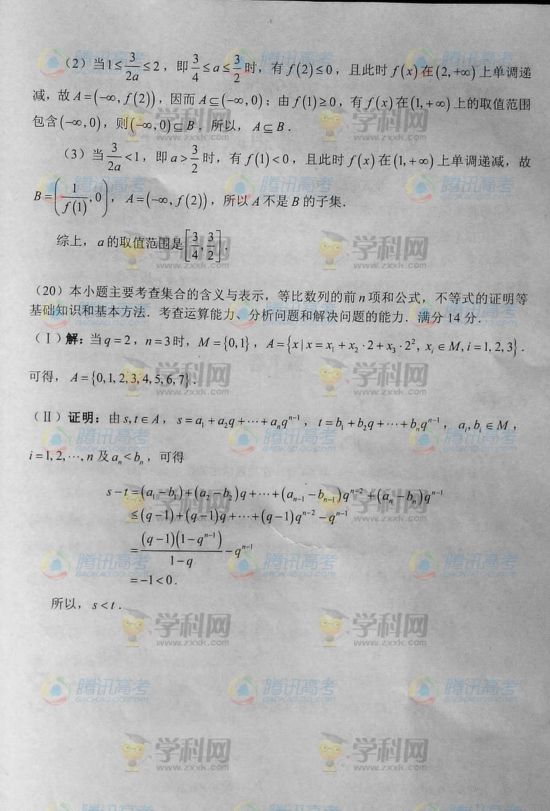 (2)当1≤3/(2a)≤2，即3/4≤a≤3/2时，有f(2)≤0，且此时f(x)在(2,+∞)上单调递
减，故A=(−∞, f(2))，因而A⊆(−∞,0)；由f(1)≥0，有f(x)在(1,+∞)上的取值范围
包含(−∞,0)，则(−∞,0)⊆B．所以，A⊆B．
(3)当3/(2a)<1，即a>3/2时，有f(1)<0，且此时f(x)在(1,+∞)上单调递减，故
B=(1/f(1),0)，A=(−∞, f(2))，所以A不是B的子集．
综上，a的取值范围是[3/4,3/2]．
(20)本小题主要考查集合的含义与表示，等比数列的前n项和公式，不等式的证明等
基础知识和基本方法．考查运算能力、分析问题和解决问题的能力．满分14分．
(Ⅰ)解：当q=2，n=3时，M={0,1}，A={x|x=x₁+x₂·2+x₃·2², xᵢ∈M, i=1,2,3}．
可得，A={0,1,2,3,4,5,6,7}．
(Ⅱ)证明：由s,t∈A，s=a₁+a₂q+⋯+aₙqⁿ⁻¹，t=b₁+b₂q+⋯+bₙqⁿ⁻¹，aᵢ,bᵢ∈M，
i=1,2,⋯,n及aₙ<bₙ，可得
s−t=(a₁−b₁)+(a₂−b₂)q+⋯+(aₙ₋₁−bₙ₋₁)qⁿ⁻²+(aₙ−bₙ)qⁿ⁻¹
≤(q−1)+(q−1)q+⋯+(q−1)qⁿ⁻²−qⁿ⁻¹
=(q−1)(1−qⁿ⁻¹)/(1−q)−qⁿ⁻¹
=−1<0．
所以，s<t．
腾讯高考
学科网
www.zxxk.com